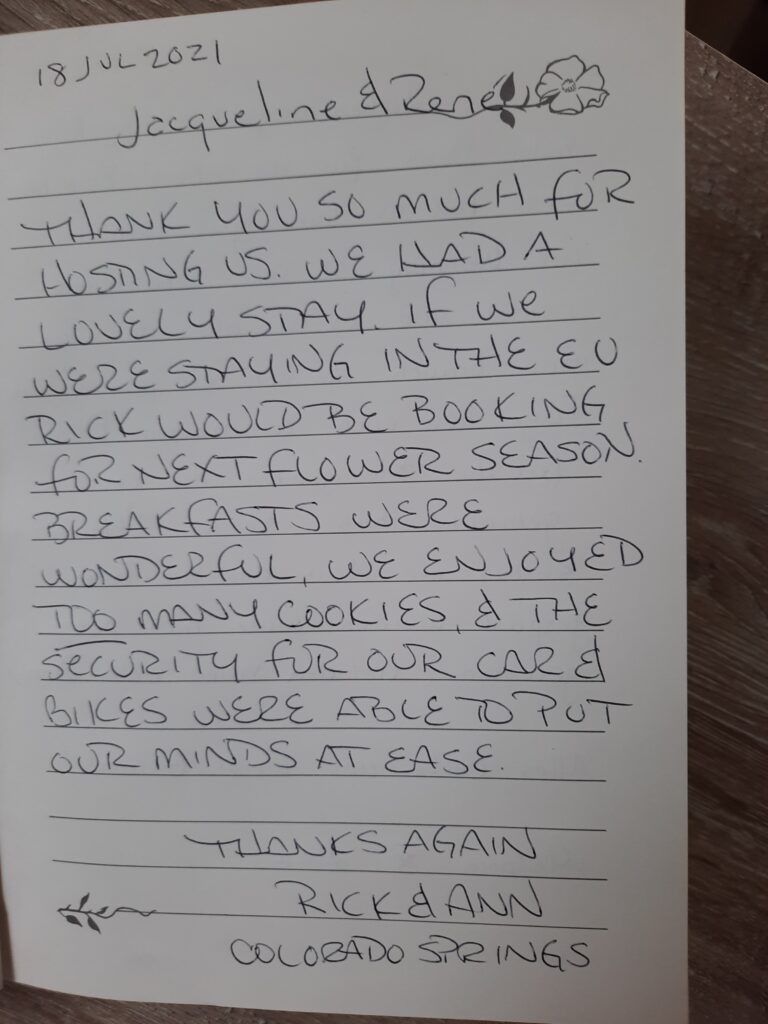 18 JUL 2021
Jacqueline & Rene
THANK YOU SO MUCH FOR
HOSTING US. WE HAD A
LOVELY STAY. IF WE
WERE STAYING IN THE EU
RICK WOULD BE BOOKING
FOR NEXT FLOWER SEASON.
BREAKFASTS WERE
WONDERFUL, WE ENJOYED
TOO MANY COOKIES, & THE
SECURITY FOR OUR CAR &
BIKES WERE ABLE TO PUT
OUR MINDS AT EASE.
THANKS AGAIN
RICK & ANN
COLORADO SPRINGS